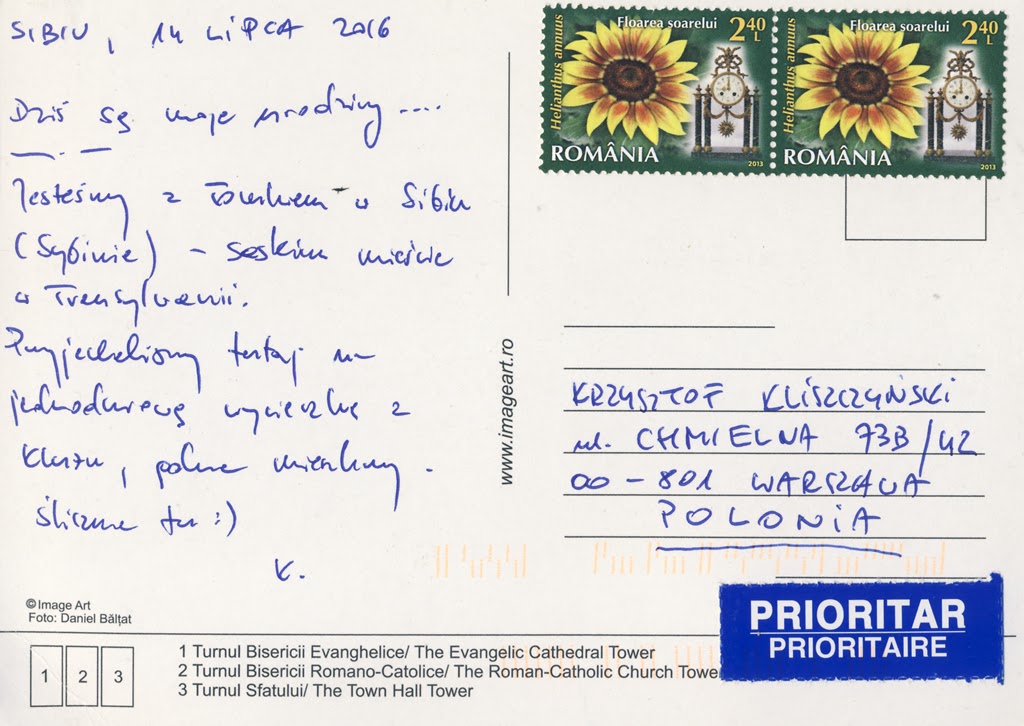 SIBIU, 14 LIPCA 2016
Dziś są moje urodziny ....
Jesteśmy z w Sibiu
(Sybinie) – saskim mieście
w Transylwanii.
Przyjechaliśmy tutaj na
jednodniową wycieczkę z
Klużu, gdzie mieszkamy.
Ślicznie tu :)
K.
© Image Art
Foto: Daniel Bălțat
www.imageart.ro
Helianthus annuus
Floarea soarelui
2 40 L
ROMÂNIA
2013
Helianthus annuus
Floarea soarelui
2 40 L
ROMÂNIA
2013
KRZYSZTOF KLISZCZYŃSKI
ul. CHMIELNA 73B/42
00-801 WARSZAWA
POLONIA
PRIORITAR
PRIORITAIRE
1 2 3
1 Turnul Bisericii Evanghelice/ The Evangelic Cathedral Tower
2 Turnul Bisericii Romano-Catolice/ The Roman-Catholic Church Towe
3 Turnul Sfatului/ The Town Hall Tower